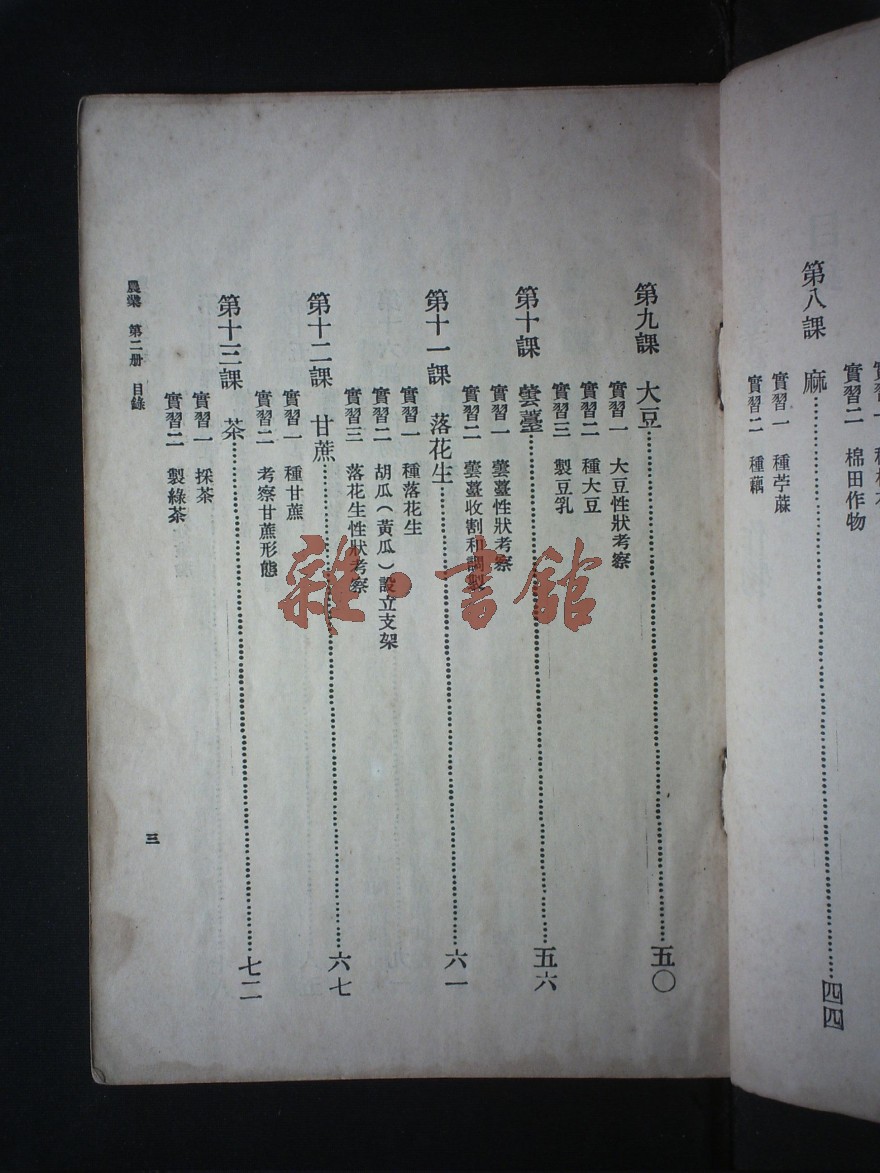 實習二 棉田作物
第八課 麻……四四
實習一 種苧蔴
實習二 種藕
第九課 大豆……五〇
實習一 大豆性狀考察
實習二 種大豆
實習三 製豆乳
第十課 蕓薹……五六
實習一 蕓薹性狀考察
實習二 蕓薹收割和調製
第十一課 落花生……六一
實習一 種落花生
實習二 胡瓜(黃瓜)設立支架
實習三 落花生性狀考察
第十二課 甘蔗……六七
實習一 種甘蔗
實習二 考察甘蔗形態
第十三課 茶……七二
實習一 採茶
實習二 製綠茶
農業 第二册 目錄
三
雜·書館